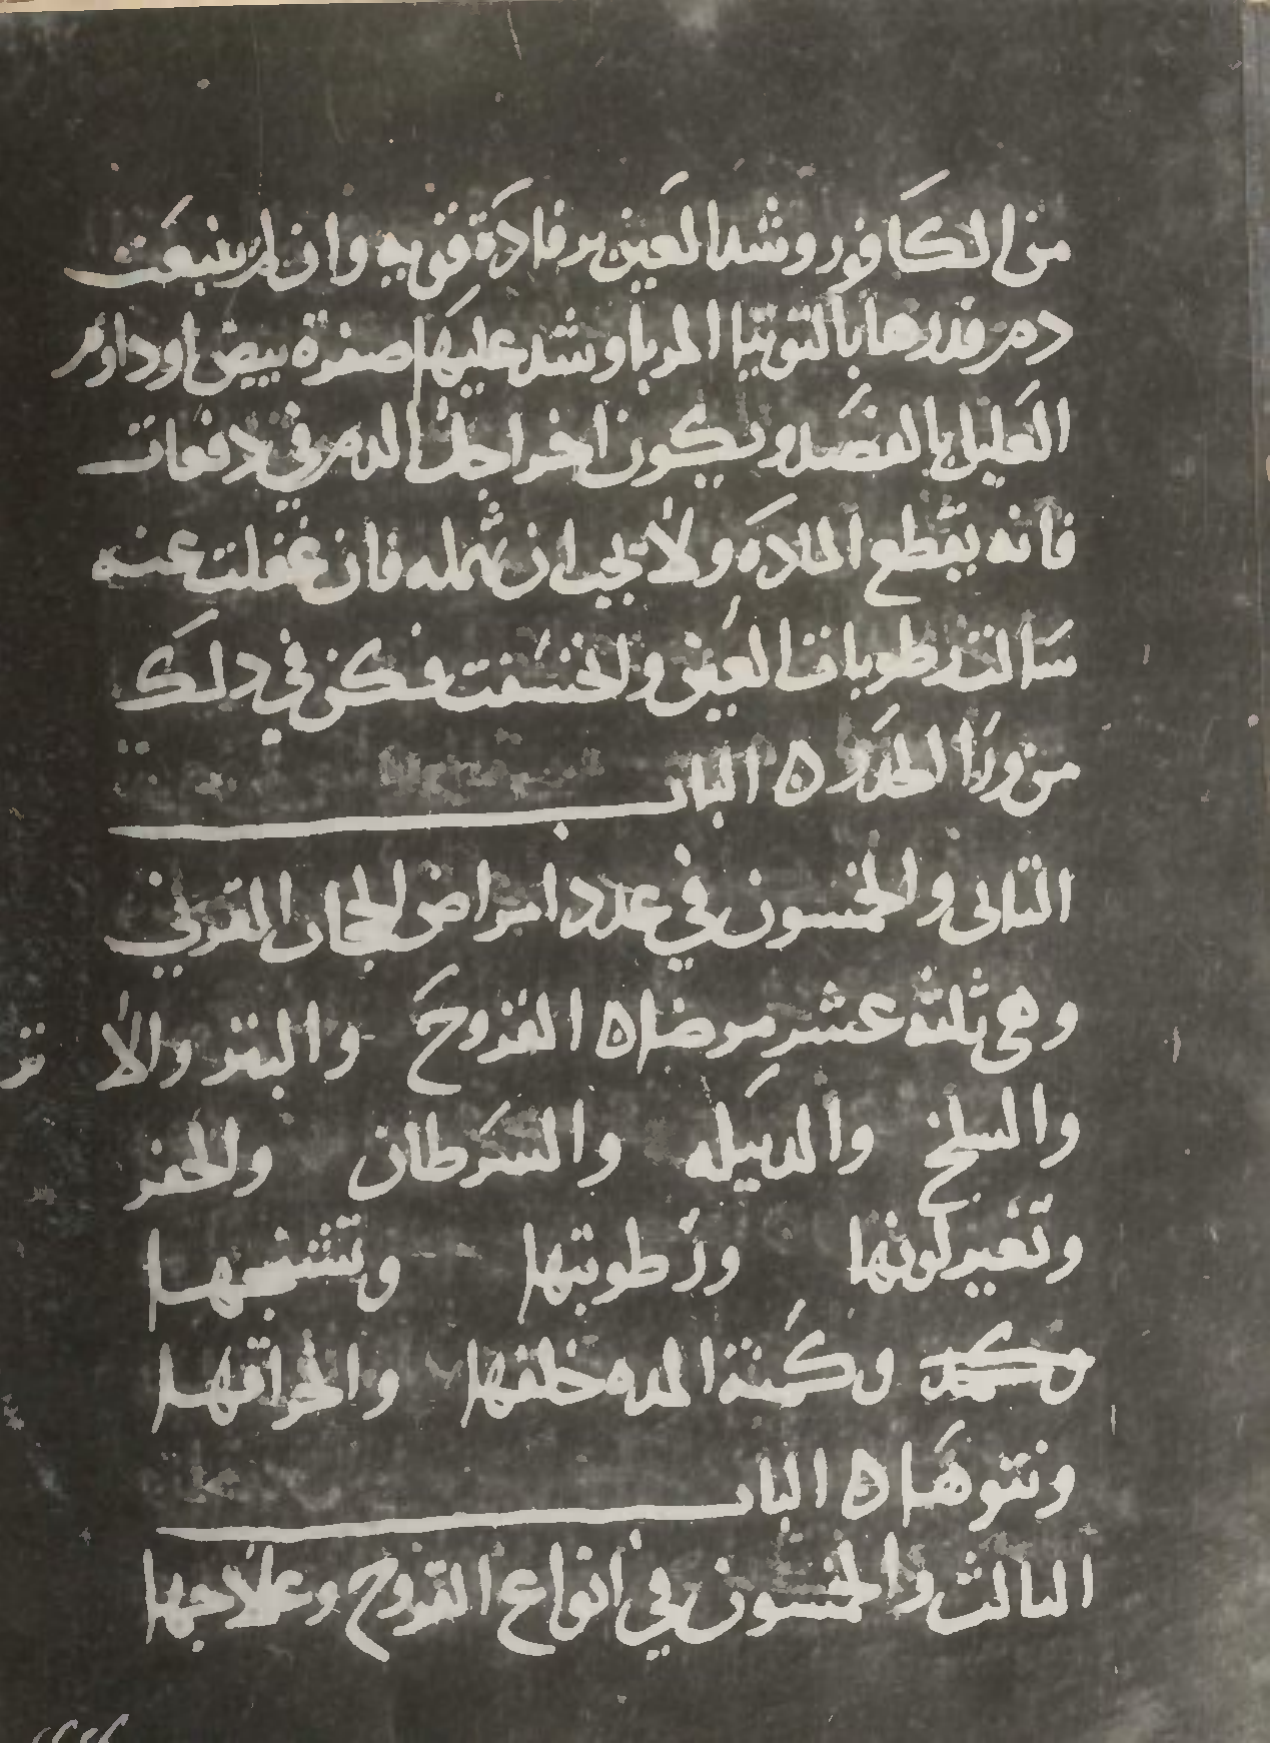 من الكافور وشد العين برفادة قويه وان لم ينبعث
دم فذرها بالتوتيا المربا وشد عليها صفرة بيض اوداوم
العليل بالفصد ويكون اخراجك الدم في دفعات
فانه يقطع المادة ولا يجب ان تهمله فان غفلت عنه
سالت رطوبات العين وانخسفت فكن في ذلك
من وراء الحذر ه الباب
الثاني والخمسون في عدد امراض الحجاب القرني
وهي ثلثه عشر مرضا ه القروح والبثر والاثر
والسلخ والدبيله والسرطان والحفر
وتغير لونها ورطوبتها وتشنجها
وكمنة المده خلفها وانخراقها
ونتوها ه الباب
الثالث والخمسون في انواع القروح وعلاجها